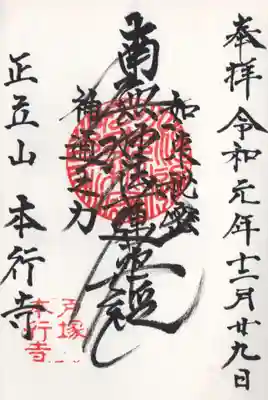 奉拝 令和元年十二月廿九日
如来秘密
南無妙法蓮華経
神通之力
正立山 本行寺
戸塚
本行寺